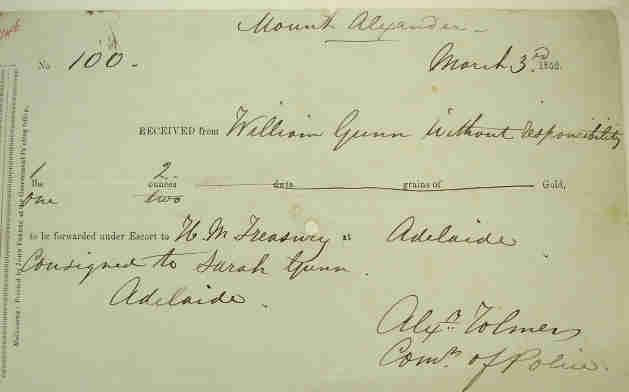 Mount Alexander
No 100.
March 3rd 1852.
RECEIVED from William Gunn Without responsibility
1 2
lbs ounces dwts grains of Gold,
one two
to be forwarded under Escort to H. M Treasury at Adelaide
Consigned to Sarah Gunn.
Adelaide.
Alexr Tolmer
Comr of Police.
Melbourne: Printed by John Ferres at the Government Printing Office.